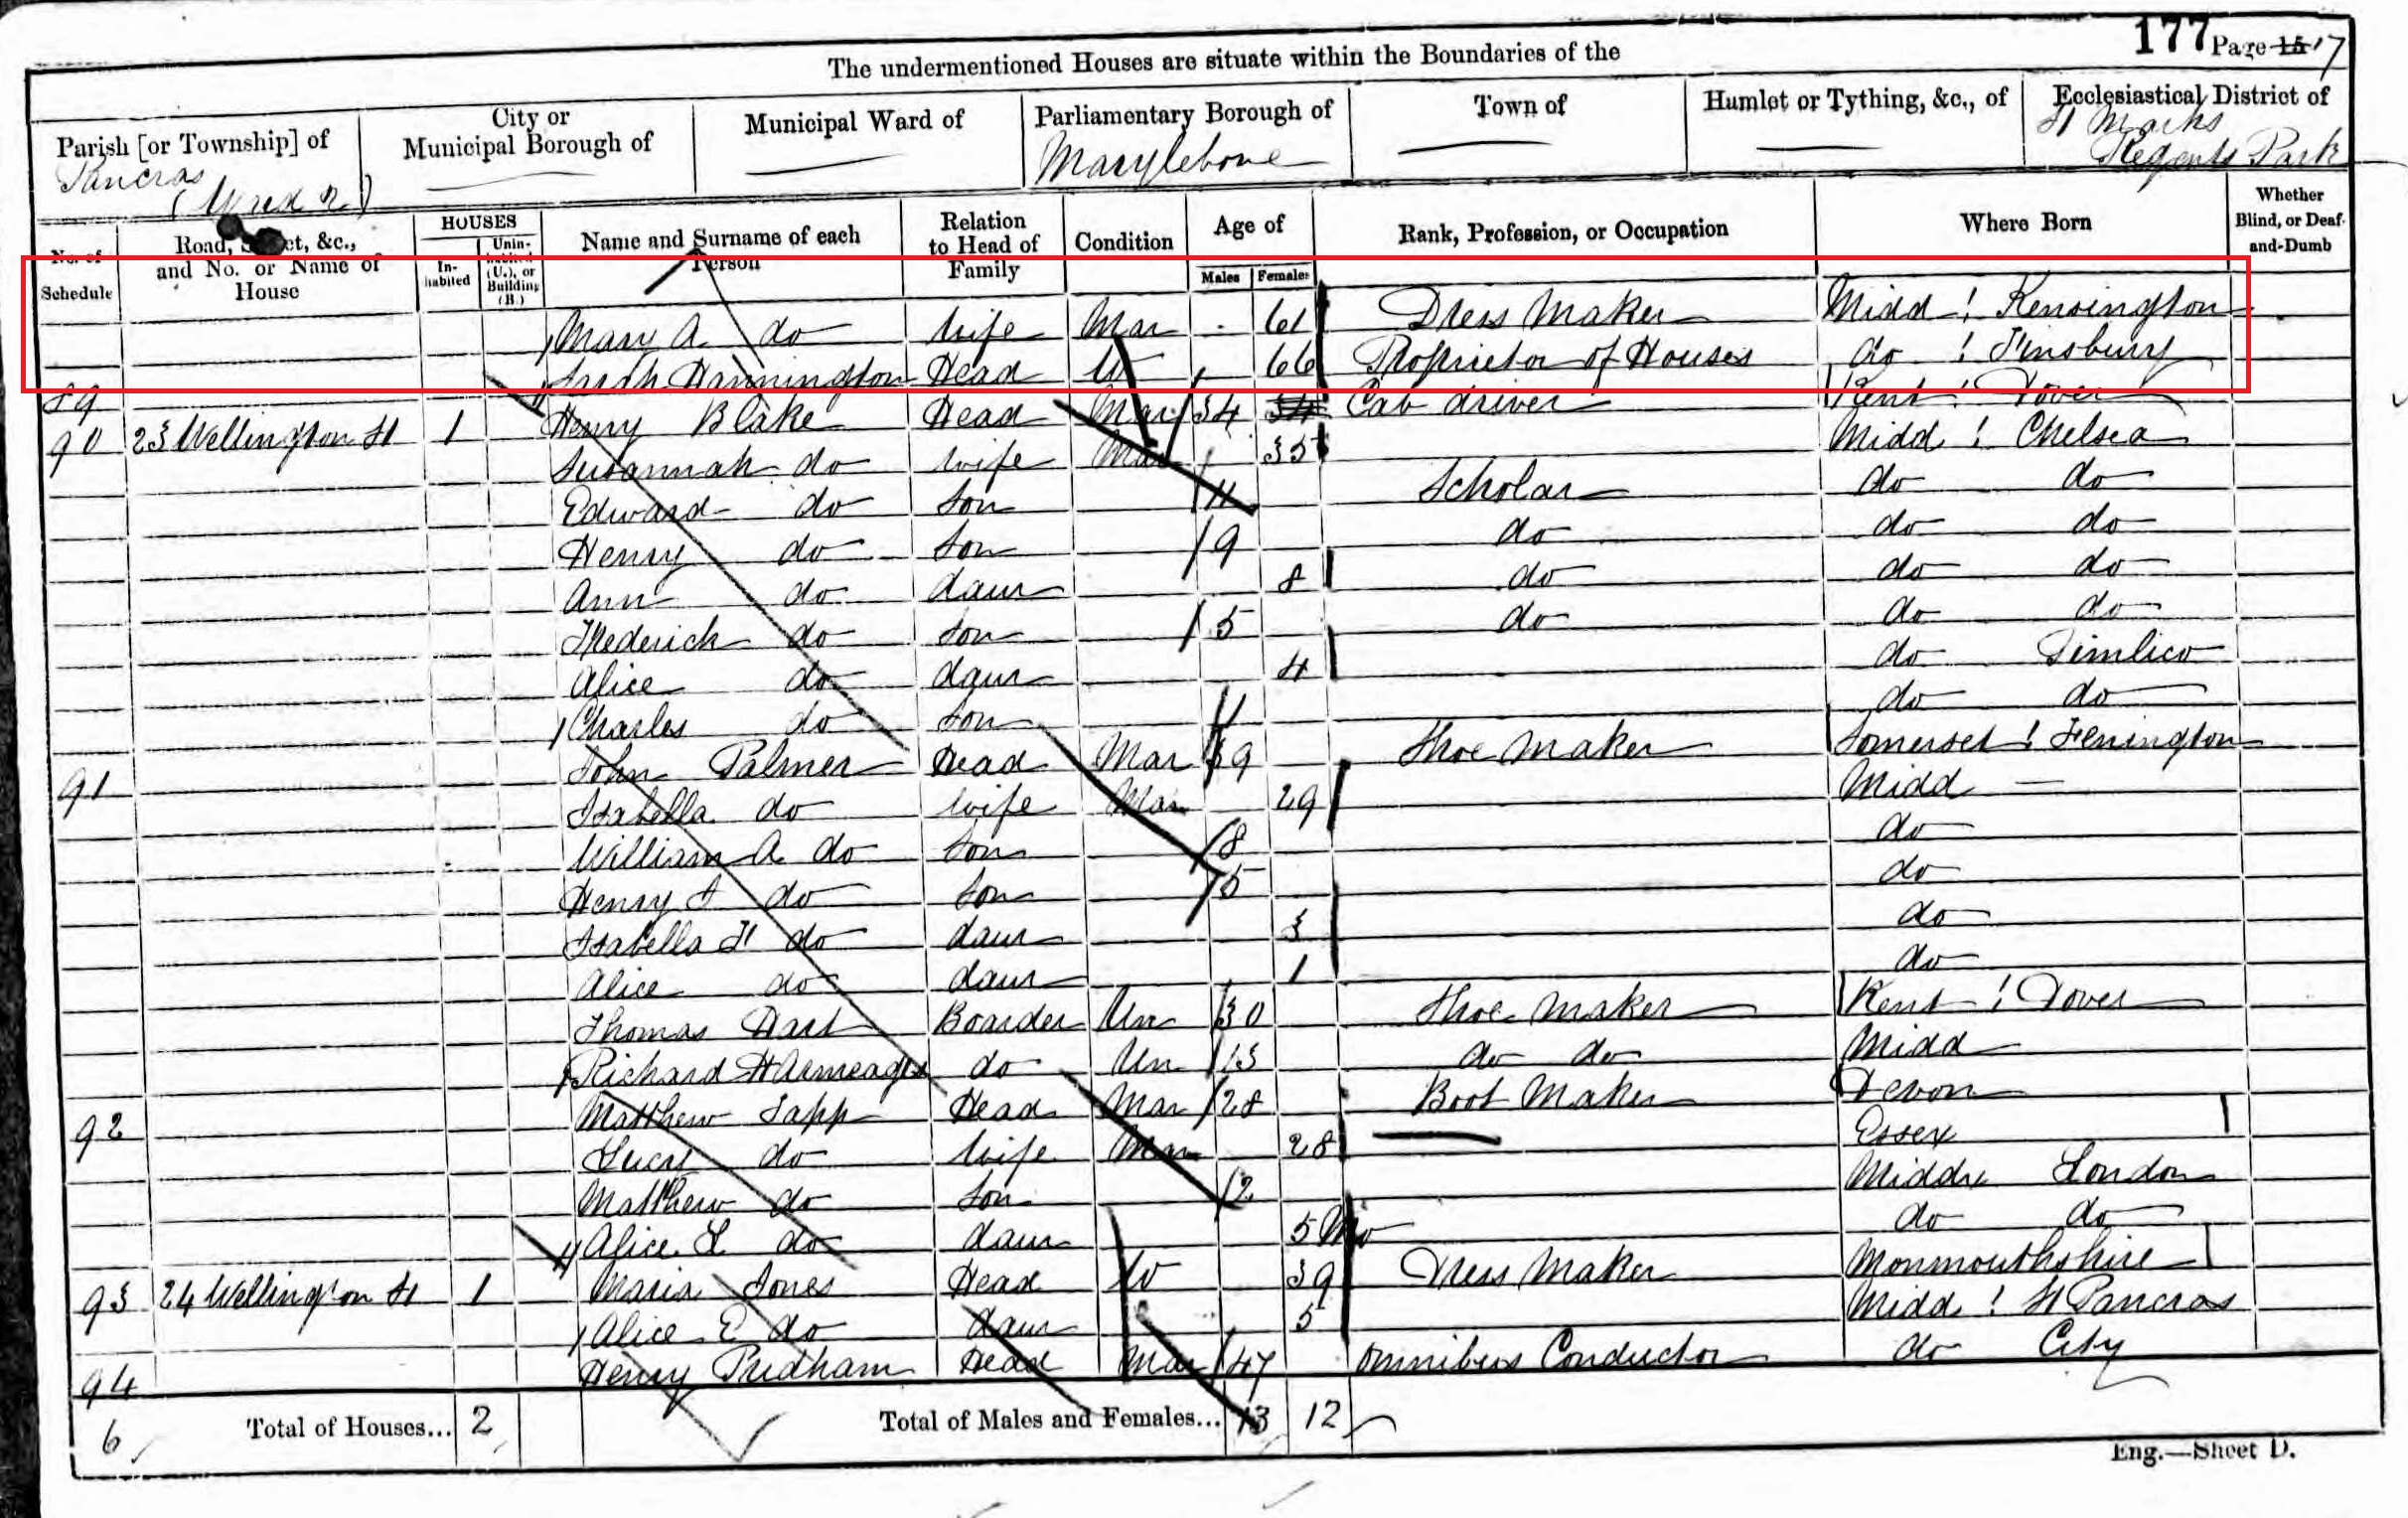 177 Page 15 17
The undermentioned Houses are situate within the Boundaries of the
Parish [or Township] of City or Municipal Borough of Municipal Ward of Parliamentary Borough of Town of Hamlet or Tything, &c., of Ecclesiastical District of
Pancras Marylebone St Marks Regents Park
No. of Schedule Road, Street, &c., and No. or Name of House HOUSES Inhabited Uninhabited (U.), or Building (B.) Name and Surname of each Person Relation to Head of Family Condition Age of Males Females Rank, Profession, or Occupation Where Born Whether Blind, or Deaf-and-Dumb
Mary A. do wife Mar 61 Dress Maker Midd : Kensington
89 Sarah Hannington Head W 66 Proprietor of Houses do : Finsbury
90 23 Wellington St 1 Henry Blake Head Mar 34 34 Cab driver Kent : Dover
Susannah do wife Mar 35 Midd : Chelsea
Edward do Son 11 Scholar do do
Henry do Son 9 do do do
Ann do daur 8 do do do
Frederick do Son 5 do do do
Alice do daur 4 do Pimlico
Charles do Son 1 do do
91 John Palmer Head Mar 39 Shoe Maker Somerset :
Isabella do wife Mar 29 Midd —
William A do Son 8 do
Henry J do Son 5 do
Isabella H do daur 3 do
Alice do daur 1 do
Thomas Hart Boarder Un 30 Shoe Maker Kent : Dover
Richard do Un 13 do do Midd
92 Matthew Tapp Head Mar 28 Boot Maker Devon
Lucy do wife Mar 28 Essex
Matthew do Son 2 Middx London
Alice L do daur 5 Mo do do
93 24 Wellington St 1 Maria Jones Head W 39 Dress Maker Monmouthshire
Alice E do daur 5 Midd : St Pancras
94 Henry Pridham Head Mar 47 Omnibus Conductor do City
6 Total of Houses... 2 Total of Males and Females... 13 12
Eng.—Sheet D.